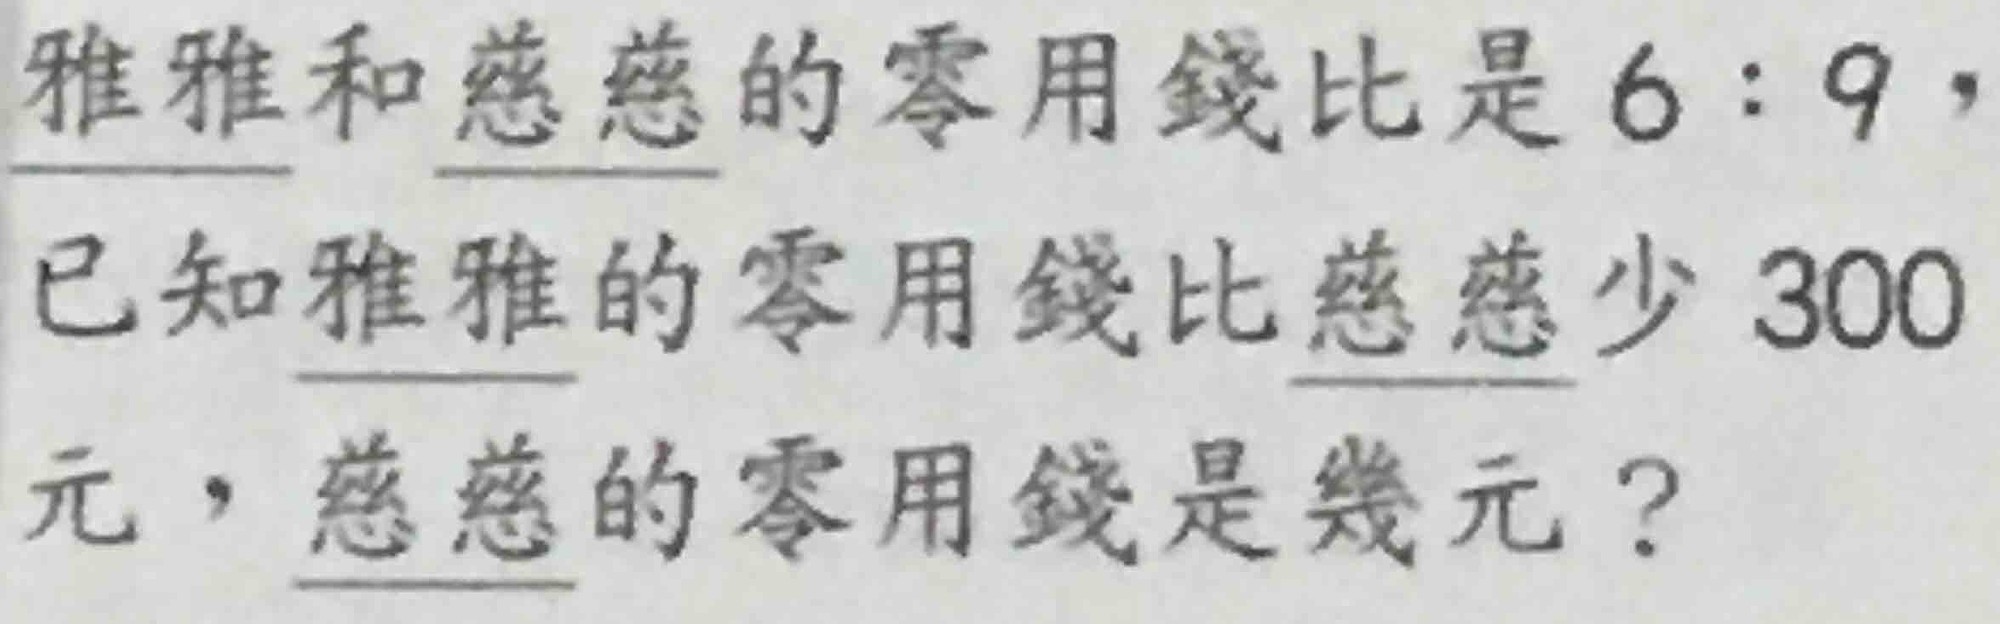 雅雅和慈慈的零用錢比是6：9，
已知雅雅的零用錢比慈慈少300
元，慈慈的零用錢是幾元？